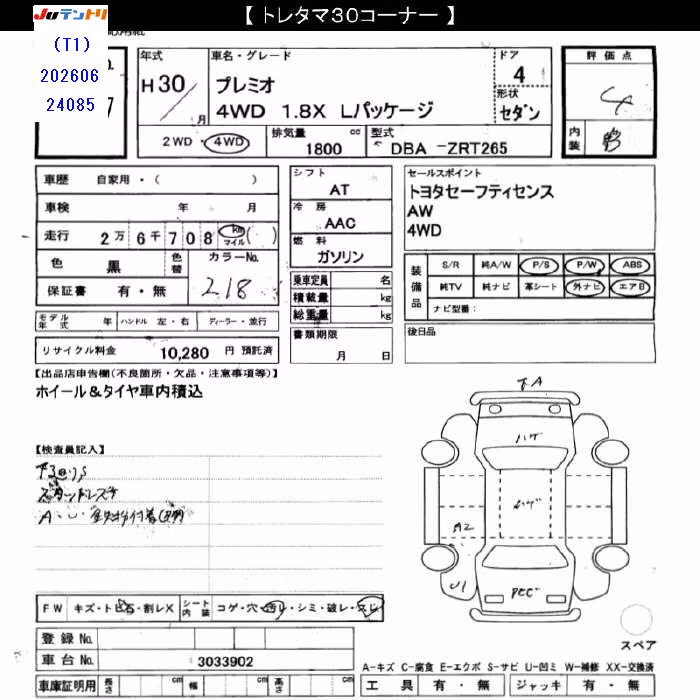 【 トレタマ30コーナー 】
Juテントリ
(T1)
202606
24085
7
年式
H30 / 月
車名・グレード
プレミオ
4WD 1.8X Lパッケージ
ドア
4
形状
セダン
評価点
4
内装
2WD・4WD
排気量 cc
1800
型式
DBA -ZRT265
車歴 自家用・( )
車検 年 月
走行 2万 6千 7 0 8 km マイル ( )
色 黒 色替 カラーNo. 218
保証書 有・無
モデル年式 年 ハンドル 左・右 ディーラー・並行
リサイクル料金 10,280 円 預託済
シフト
AT
冷房
AAC
燃料
ガソリン
乗車定員 名
積載量 kg
総重量 kg
書類期限
月 日
セールスポイント
トヨタセーフティセンス
AW
4WD
装備品
S/R 純A/W P/S P/W ABS
純TV 純ナビ 革シート 外ナビ エアB
ナビ型番:
後日品
【出品店申告欄(不良箇所・欠品・注意事項等)】
ホイール&タイヤ車内積込
【検査員記入】
A・U
FW キズ・トビ石・割レX シート内装 コゲ・穴・汚レ・シミ・破レ・スレ
登録 No.
車台 No. 3033902
車庫証明用 長さ cm 幅 cm 高さ cm
A
ハゲ
ハゲ
A2
U1
スペア
A-キズ C-腐食 E-エクボ S-サビ U-凹ミ W-補修 XX-交換済
工具 有・無 ジャッキ 有・無